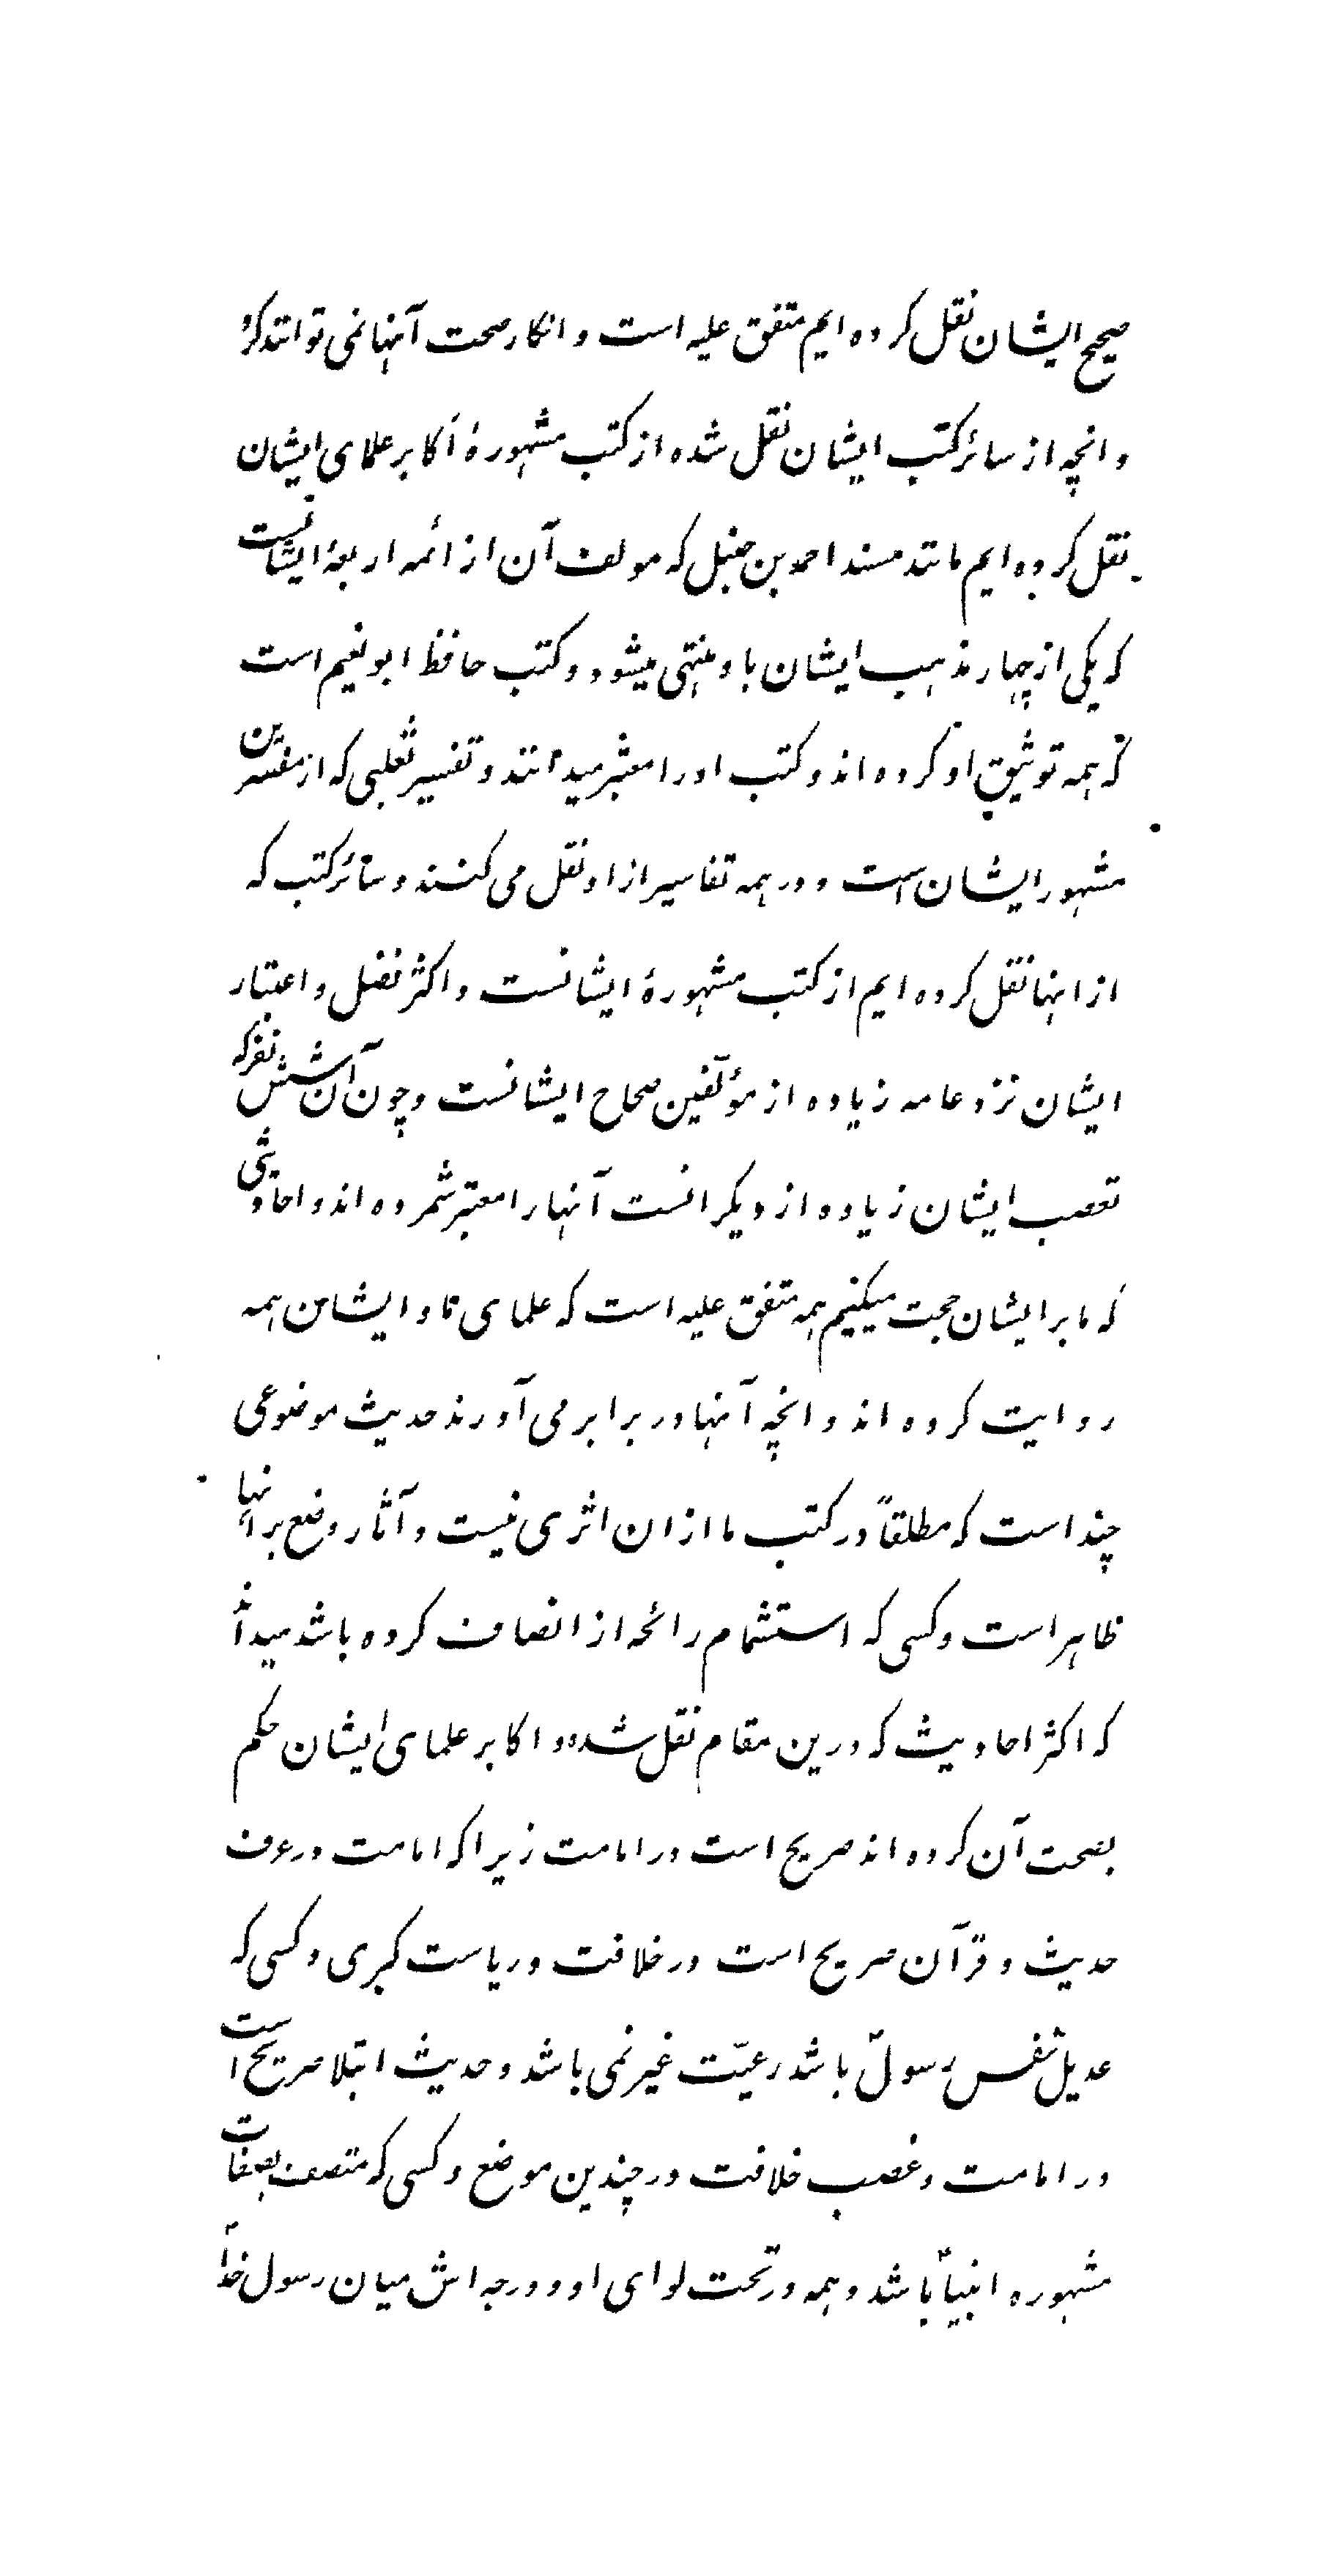 صحیح ایشان نقل کرده ایم متفق علیه است و انکار صحت آنها نمی توانند کرد
و انچه از سائر کتب ایشان نقل شده از کتب مشهورهٔ اکابر علمای ایشان
نقل کرده ایم مانند مسند احمد بن حنبل که مولف آن از ائمه اربعهٔ ایشانست
که یکی از چهار مذهب ایشان باو منتهی میشود و کتب حافظ ابو نعیم است
که همه توثیق او کرده اند و کتب او را معتبر میدانند و تفسیر ثعلبی که از مفسرین
مشهور ایشان است و در همه تفاسیر از او نقل می کنند و سائر کتب که
از انها نقل کرده ایم از کتب مشهورهٔ ایشانست و اکثر فضل و اعتبار
ایشان نزد عامه زیاده از مؤلفین صحاح ایشانست و چون آن شش نفر که
تعصب ایشان زیاده از دیگرانست آنها را معتبر شمرده اند و احادیثی
که ما بر ایشان حجت میکنیم همه متفق علیه است که علمای ما و ایشان همه
روایت کرده اند و انچه آنها در برابر می آورند حدیث موضوعی
چند است که مطلقاً در کتب ما ازان اثری نیست و آثار وضع بر انها
ظاهر است و کسی که استشمام رائحه از انصاف کرده باشد میداند
که اکثر احادیث که درین مقام نقل شده و اکابر علمای ایشان حکم
بصحت آن کرده اند صریح است در امامت زیرا که امامت در عرف
حدیث و قرآن صریح است در خلافت و ریاست کبری و کسی که
عدیل نفس رسولؐ باشد رعیّت غیر نمی باشد و حدیث ابتلا صریح است
در امامت و غصب خلافت در چندین موضع و کسی که متصف بصفات
مشهوره انبیاؑ باشد و همه در تحت لوای او و درجه اش میان رسول خداؐ